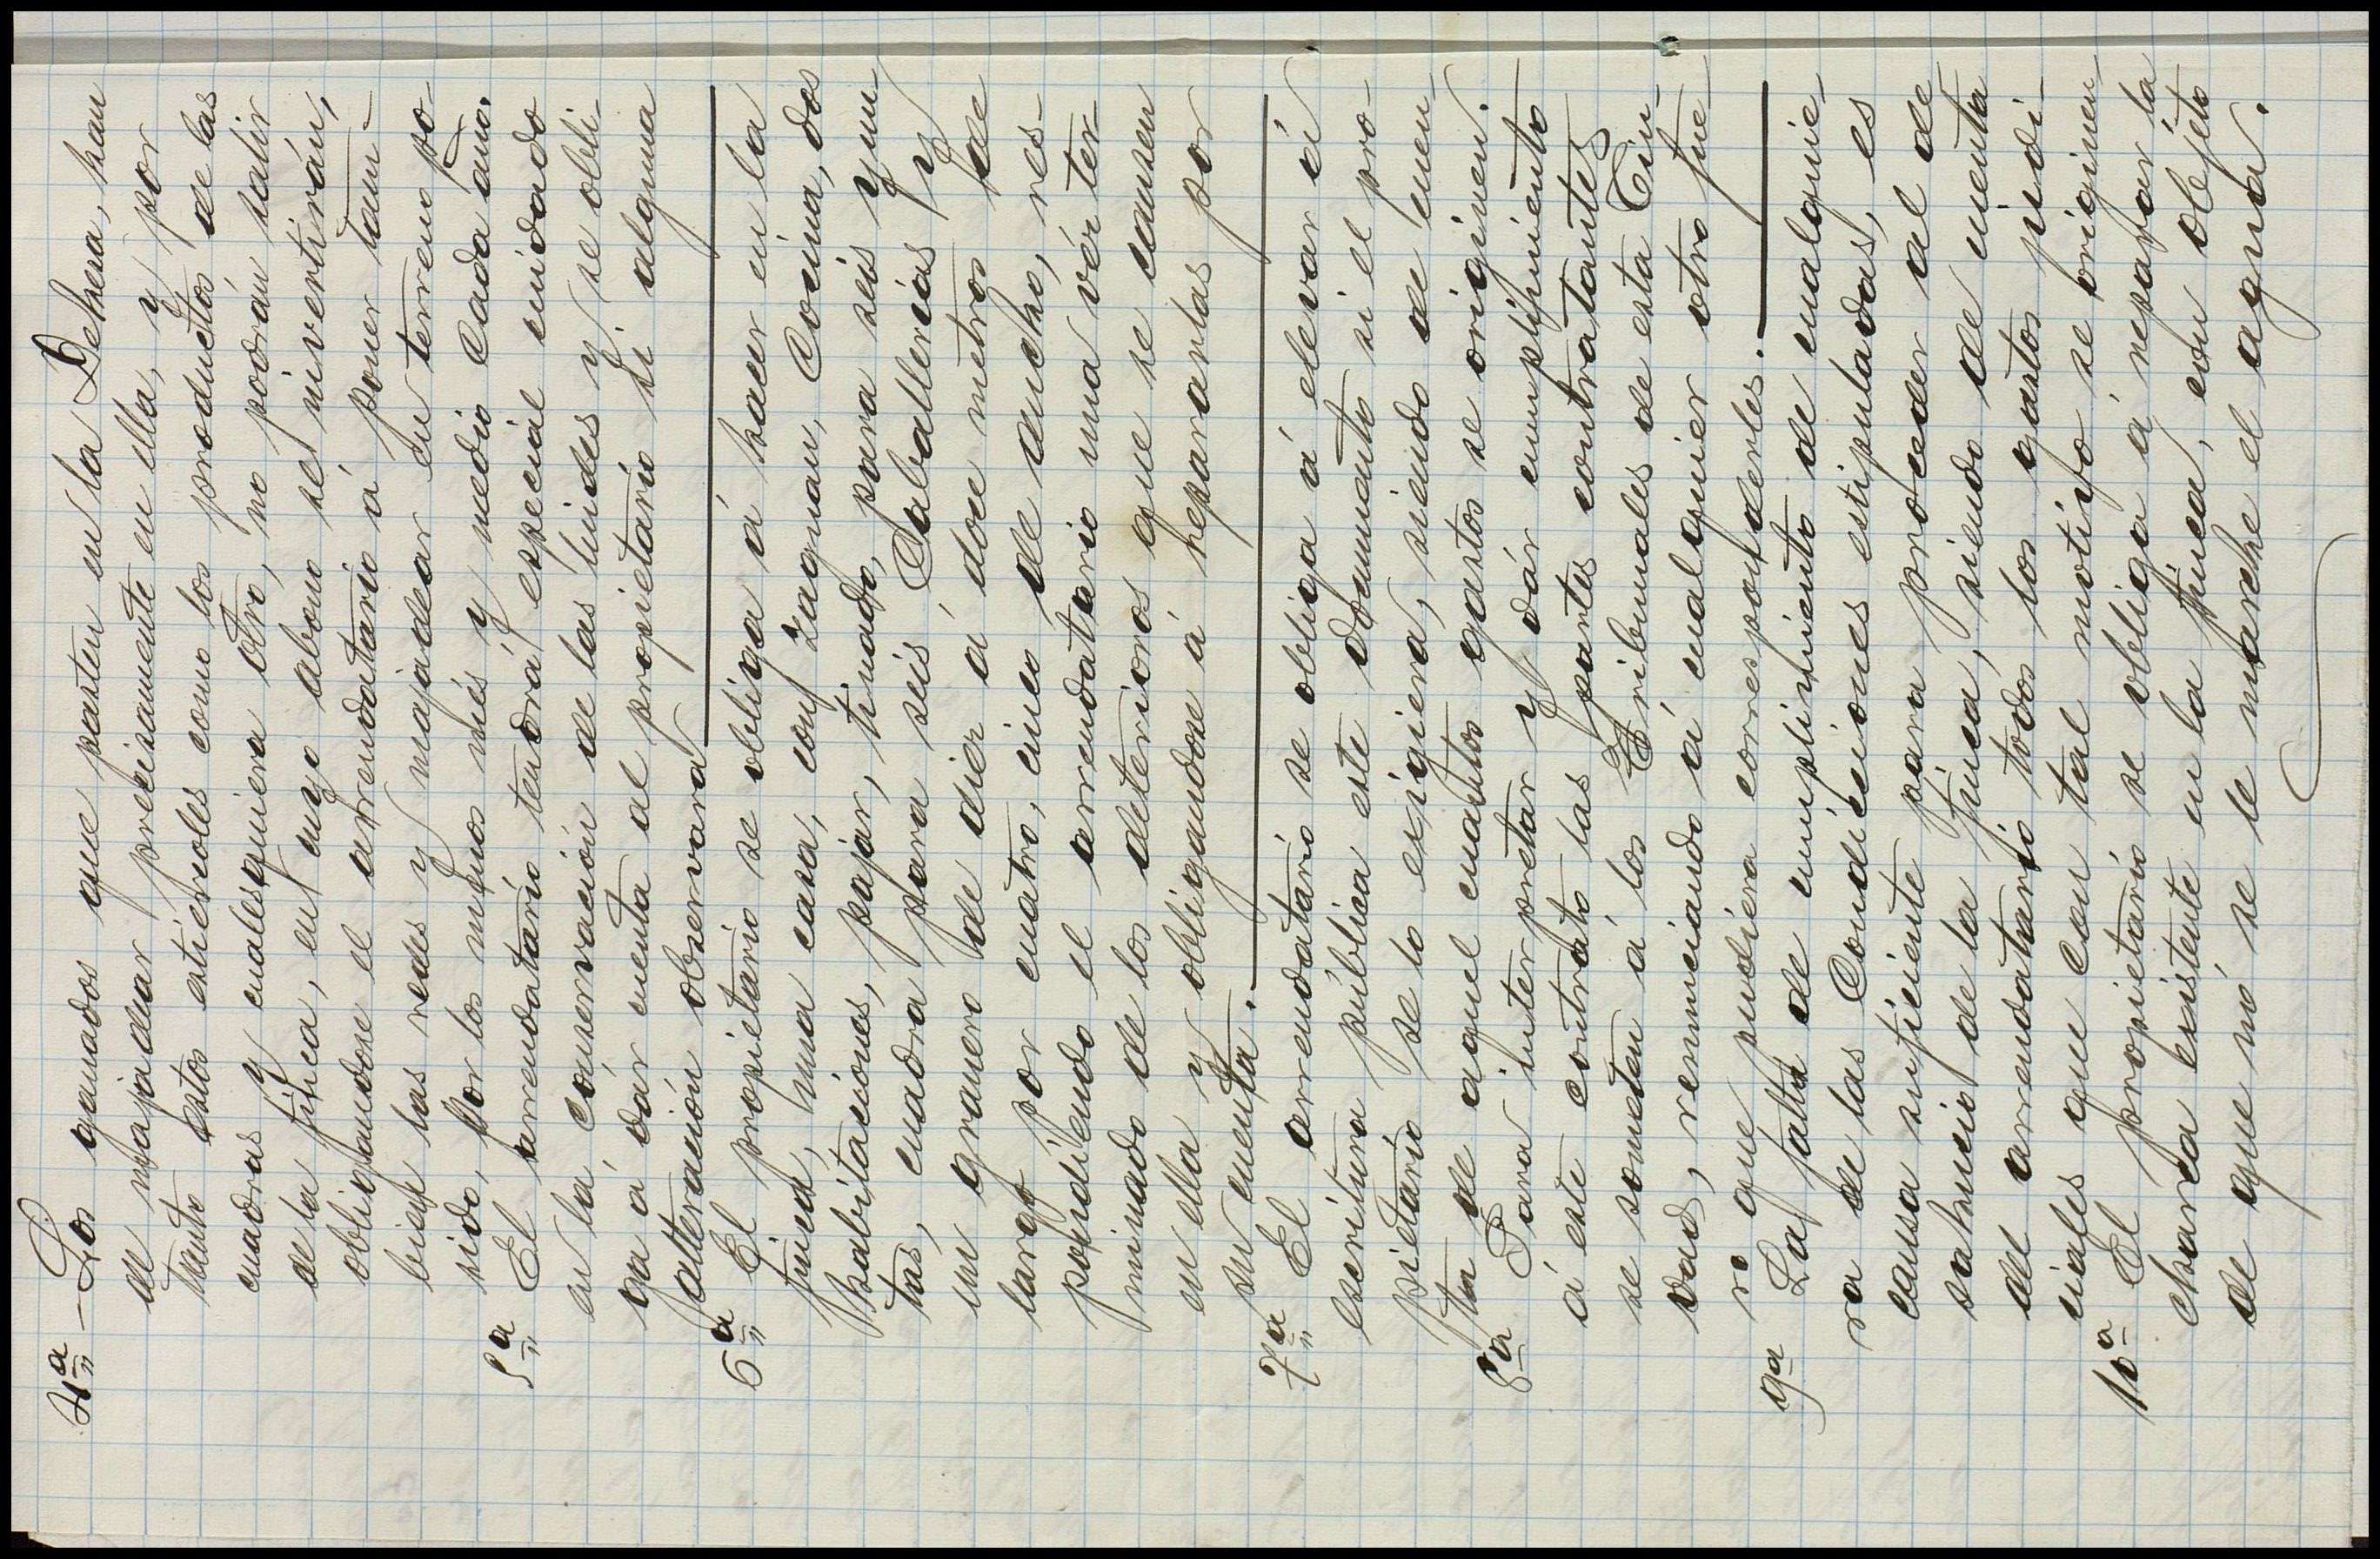 4ª - Los ganados que pasten en la Dehesa, han
de majadear precisamente en ella, y por
tanto estos estiércoles como los productos de las
cuadras y cualesquiera otro, no podrán salir
de la finca, en cuyo abono se invertirán,
obligandose el arrendatario á poner tam-
bien las redes y majadear en terreno po-
sido, por los menos més y medio cada año.
5ª El arrendatario tendrá especial cuidado
en la conservación de las lindes y se obli-
ga á dár cuenta al propietario si alguna
alteración observara
6ª El propietario se obliga á hacer en la
finca, una casa, con zaguan, cocina, dos
habitaciones, pajar, tinado, para seis yun-
tas, cuadra para seis Caballerias y
un granero de diez á doce metros de
largo por cuatro, cinco de ancho, res-
pondiendo el arrendatario una véz ter-
minado de los deterioros que se causen
en ella y obligandose á repararlas por
su cuenta.
7ª El arrendatario se obliga á elevar á
escritura pública este documento si el pro-
pietario se lo exigiera, siendo de cuen-
ta de aquel cuantos gastos se originen.
8ª Para interpretar y dár cumplimiento
á este contrato las partes contratantes
se someten á los Tribunales de esta Ciu-
dad, renunciando á cualquier otro fue-
ro que pudiera corresponderles.
9ª La falta de cumplimiento de cualquie-
ra de las Condiciones estipuladas, es
causa suficiente para proceder al de
sahucio de la finca, siendo de cuenta
del arrendatario todos los gastos judi-
ciales que con tal motivo se originen
10ª El propietario se obliga á reparar la
charca existente en la finca, con objeto
de que nó se le marche el agua.